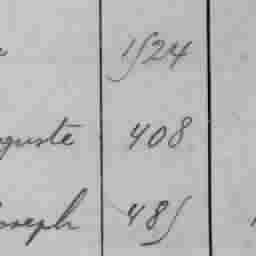 1524
guste 408
oseph 485